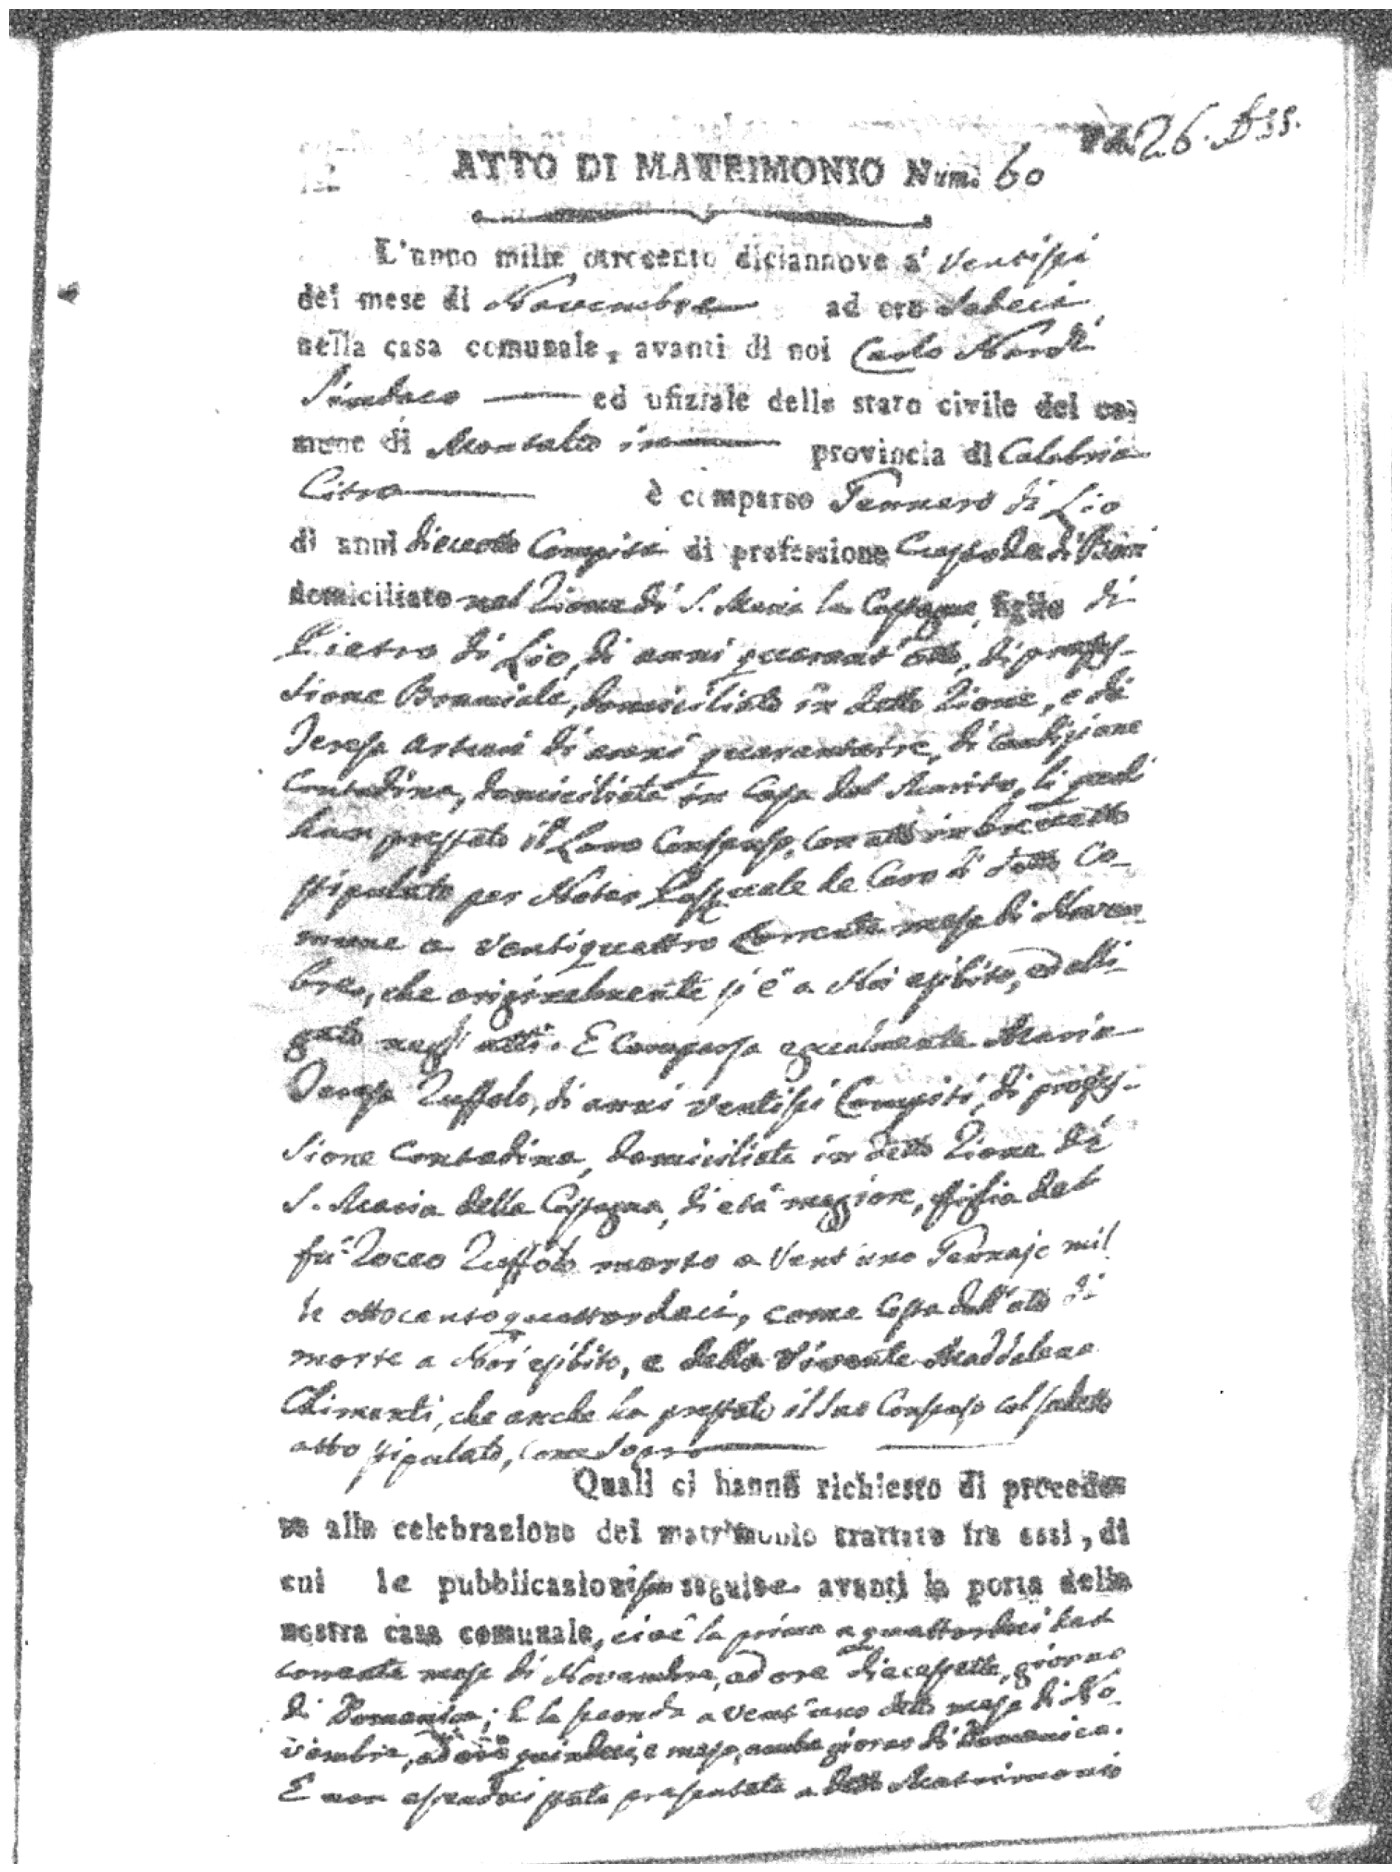 26.
ATTO DI MATRIMONIO Num. 60
L'anno mille ottocento diciannove a' Ventisei
del mese di Novembre ad ore Sedeci
nella casa comunale, avanti di noi Carlo Nardi
Sindaco ed ufiziale dello stato civile del co-
mune di Montalto in provincia di Calabria
Citra è comparso Gennaro di Lio
di anni dieciotto Compiti di professione Custode di Bovi
domiciliato nel Rione di S. Maria la Castagna, figlio di
Pietro di Lio, di anni quarant'otto, di profes-
sione Bracciale, domiciliato in detto Rione, e di
Teresa Arturi di anni quarantatre, di condizione
Contadina, domiciliata in Casa del Marito, li quali
han prestato il Loro Consenso, con atto in brevetto
stipulato per Notar Pasquale de Caro di detto Co-
mune a ventiquattro Corrente mese di Novem-
bre, che originalmente si è a Noi esibito, ed alli-
gato negl'atti. E Comparsa egualmente Maria
Teresa Ruffolo, di anni ventisei Compiti, di profes-
sione Contadina, domiciliata in detto Rione di
S. Maria della Castagna, di età maggiore, figlia del
fù Rocco Ruffolo morto a Vent'uno Gennajo mil
le ottocentoquattordeci, come Costa dall'atto di
morte a Noi esibito, e della Vivente Maddalena
Chimenti, che anche ha prestato il suo Consenso col sudetto
atto stipulato, Come Sopra
Quali ci hanno richiesto di procede-
re alla celebrazione del matrimonio trattato fra essi, di
cui le pubblicazioni son seguite avanti la porta della
nostra casa comunale, cioè la prima a quattordeci del
corrente mese di Novembre, ad ore diecessette, giorno
di Domenica; E la seconda a vent'uno detto mese di No-
vembre, ad ore quindeci, e mezo, anche giorno di Domenica.
E non essendoci stata presentata a detto Matrimonio